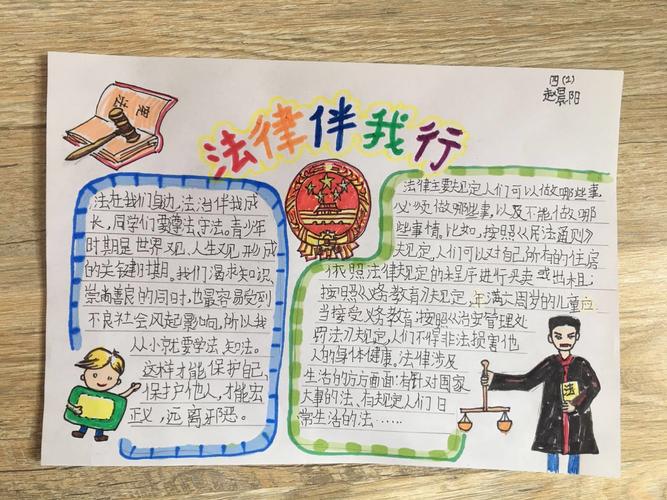 四(2)
赵景阳
法律伴我行
法在我们身边,法治伴我成
长,同学们要遵法、守法。青少年
时期是世界观、人生观形成
的关键时期。我们渴求知识、
崇尚善良的同时,也最容易受到
不良社会风起影响,所以我
从小就要学法、知法。
这样才能保护自己,
保护他人,才能宏
正义,远离邪恶。
法律主要规定人们可以做哪些事,
必须做哪些事,以及不能做哪
些事情。比如,按照《民法通则》
规定,人们可以对自己所有的住房
依照法律规定的程序进行买卖或出租;
按照《义务教育》规定,年满六周岁的儿童应
当接受义务教育;按照《治安管理处
罚法》规定,人们不得非法损害他
人的身体健康。法律涉及
生活的方方面面:有针对国家
大事的法,有规定人们日
常生活的法……
法